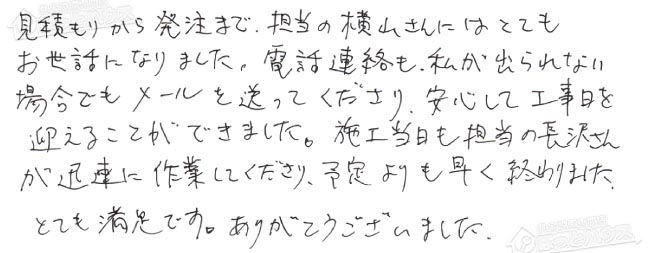 見積もりから発注まで、担当の横山さんにはとても
お世話になりました。電話連絡も、私が出られない
場合でもメールを送ってくださり、安心して工事日を
迎えることができました。施工当日も担当の長沢さん
が迅速に作業してくださり、予定よりも早く終わりました。
とても満足です。ありがとうございました。